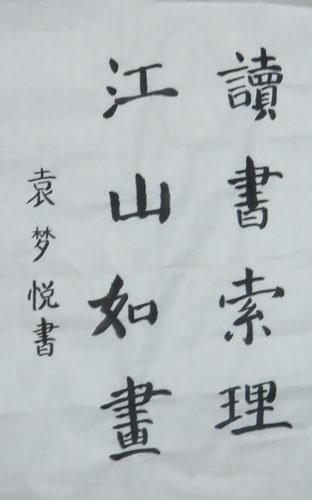 讀書索理
江山如畫
袁梦悦書